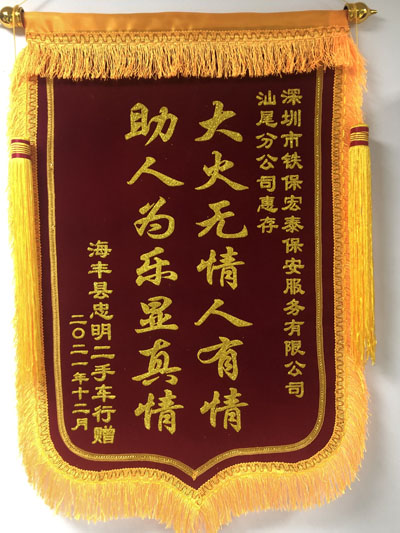 深圳市铁保宏泰保安服务有限公司
汕尾分公司惠存
大火无情人有情
助人为乐显真情
海丰县忠明二手车行赠
二〇二一年十二月